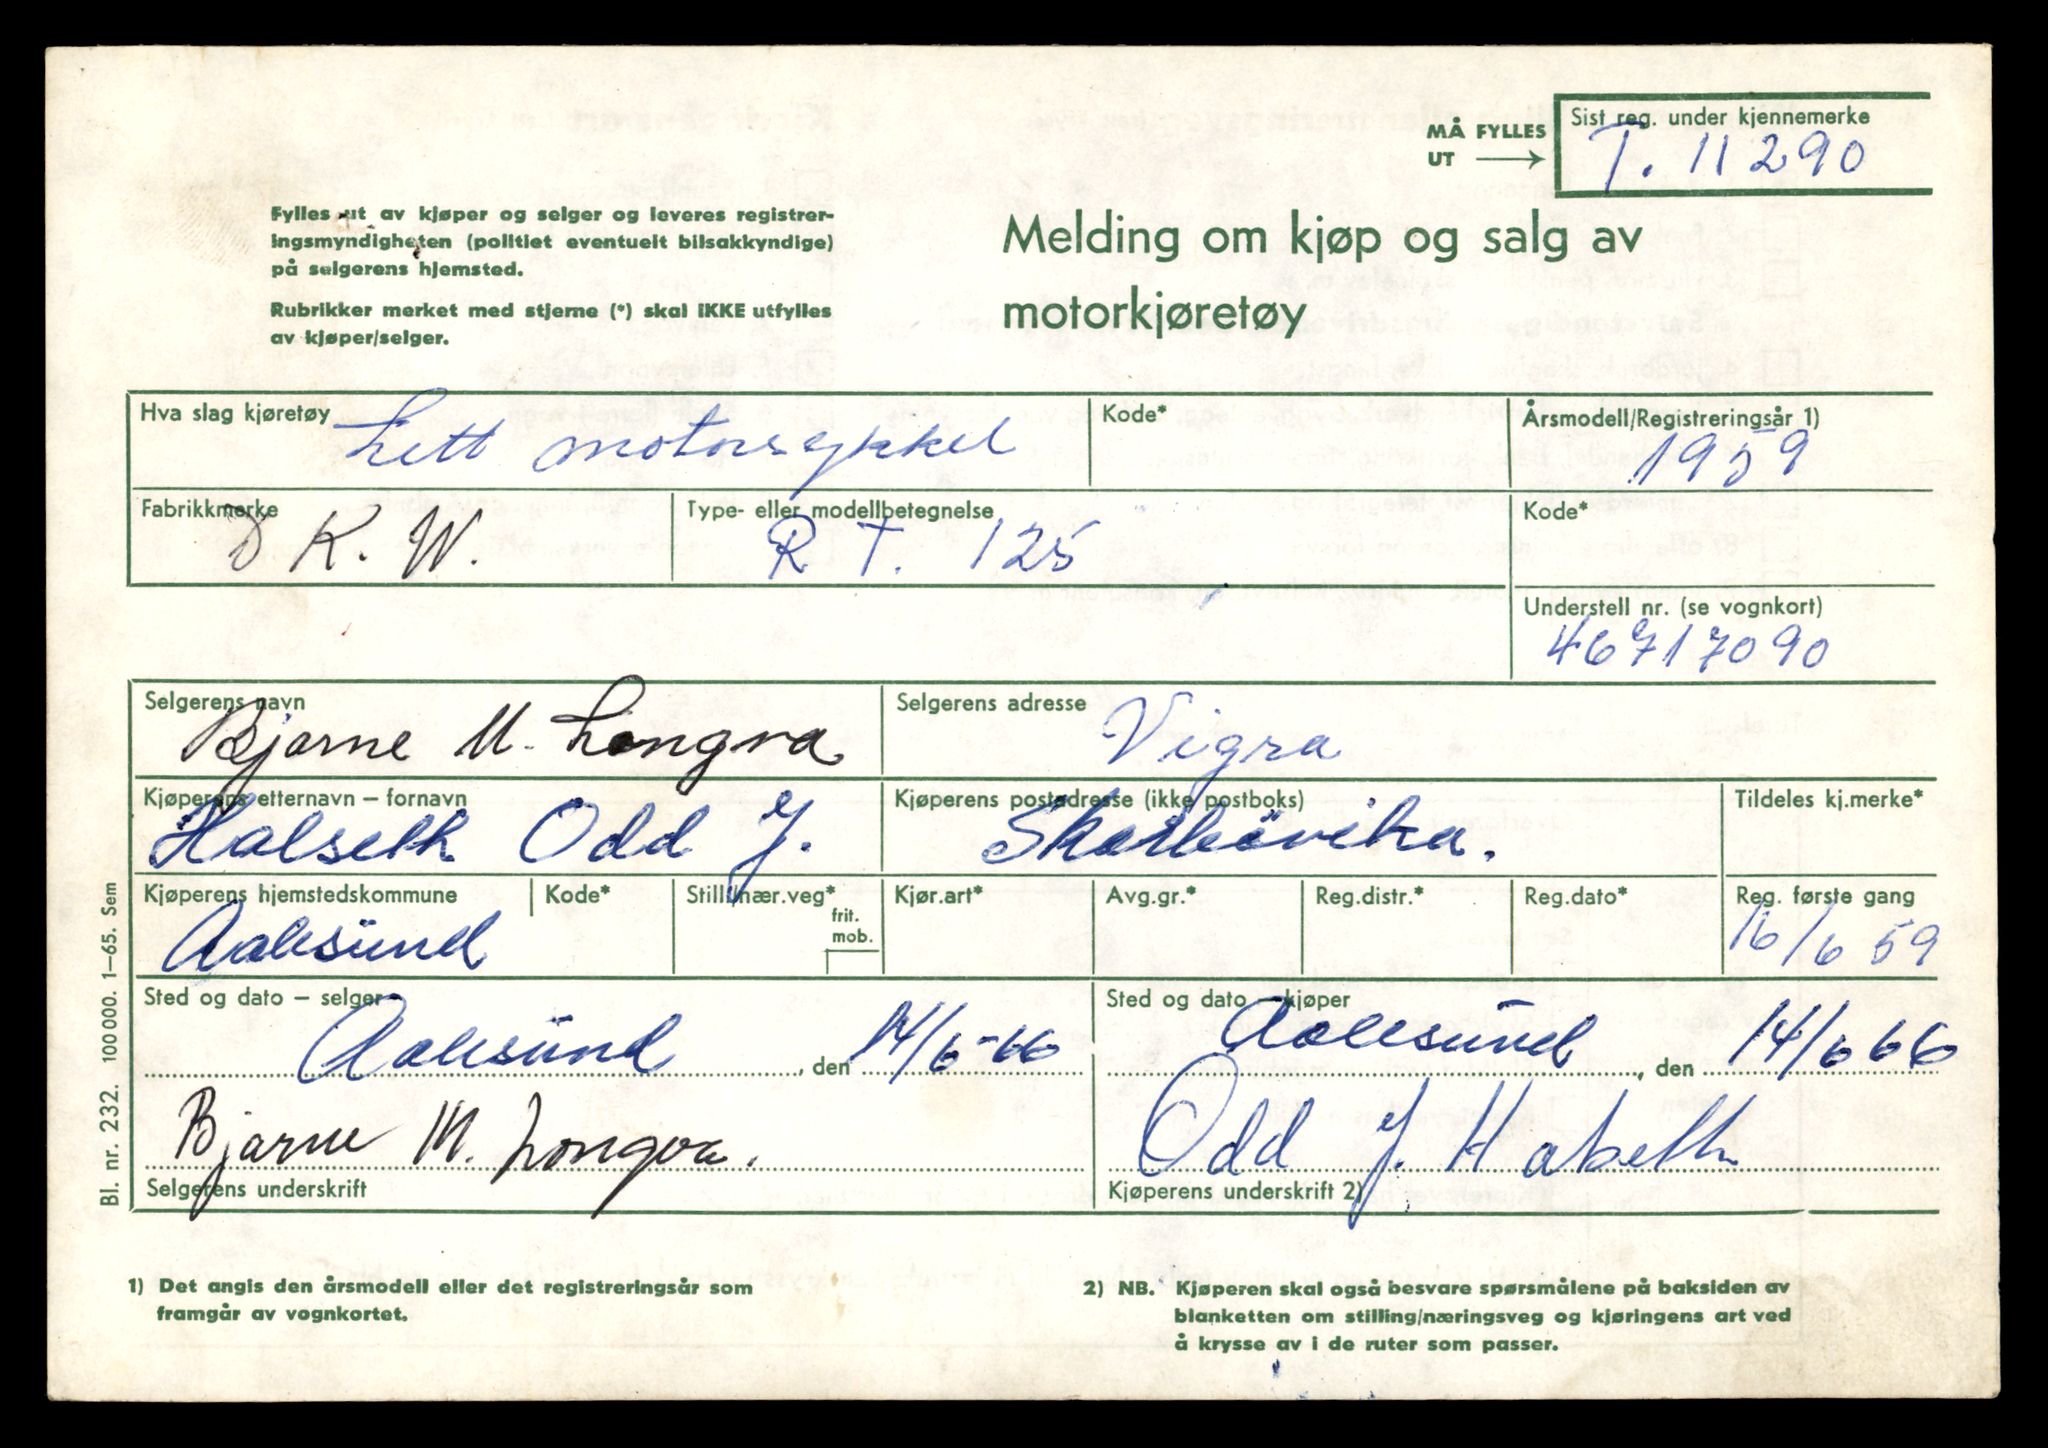 MÅ FYLLES UT →
Sist reg. under kjennemerke
T. 11290
Fylles ut av kjøper og selger og leveres registrer-
ingsmyndigheten (politiet eventuelt bilsakkyndige)
på selgerens hjemsted.
Rubrikker merket med stjerne (*) skal IKKE utfylles
av kjøper/selger.
Melding om kjøp og salg av
motorkjøretøy
Hva slag kjøretøy
Lett motorsykkel
Kode*
Årsmodell/Registreringsår 1)
1959
Fabrikkmerke
D K. W.
Type- eller modellbetegnelse
R. T. 125
Kode*
Understell nr. (se vognkort)
46717090
Selgerens navn
Bjarne M. Longva
Selgerens adresse
Vigra
Kjøperens etternavn – fornavn
Halseth Odd J.
Kjøperens postadresse (ikke postboks)
Skarbövika.
Tildeles kj.merke*
Kjøperens hjemstedskommune
Aalesund
Kode*
Still./nær.veg*
frit.
mob.
Kjør.art*
Avg.gr.*
Reg.distr.*
Reg.dato*
Reg. første gang
16/6 59
Sted og dato – selger
Aalesund, den 14/6-66
Sted og dato – kjøper
Aalesund, den 14/6 66
Bjarne M. Longva.
Selgerens underskrift
Odd J. Halseth
Kjøperens underskrift 2)
Bl. nr. 232. 100 000. 1–65. Sem
1) Det angis den årsmodell eller det registreringsår som
framgår av vognkortet.
2) NB. Kjøperen skal også besvare spørsmålene på baksiden av
blanketten om stilling/næringsveg og kjøringens art ved
å krysse av i de ruter som passer.